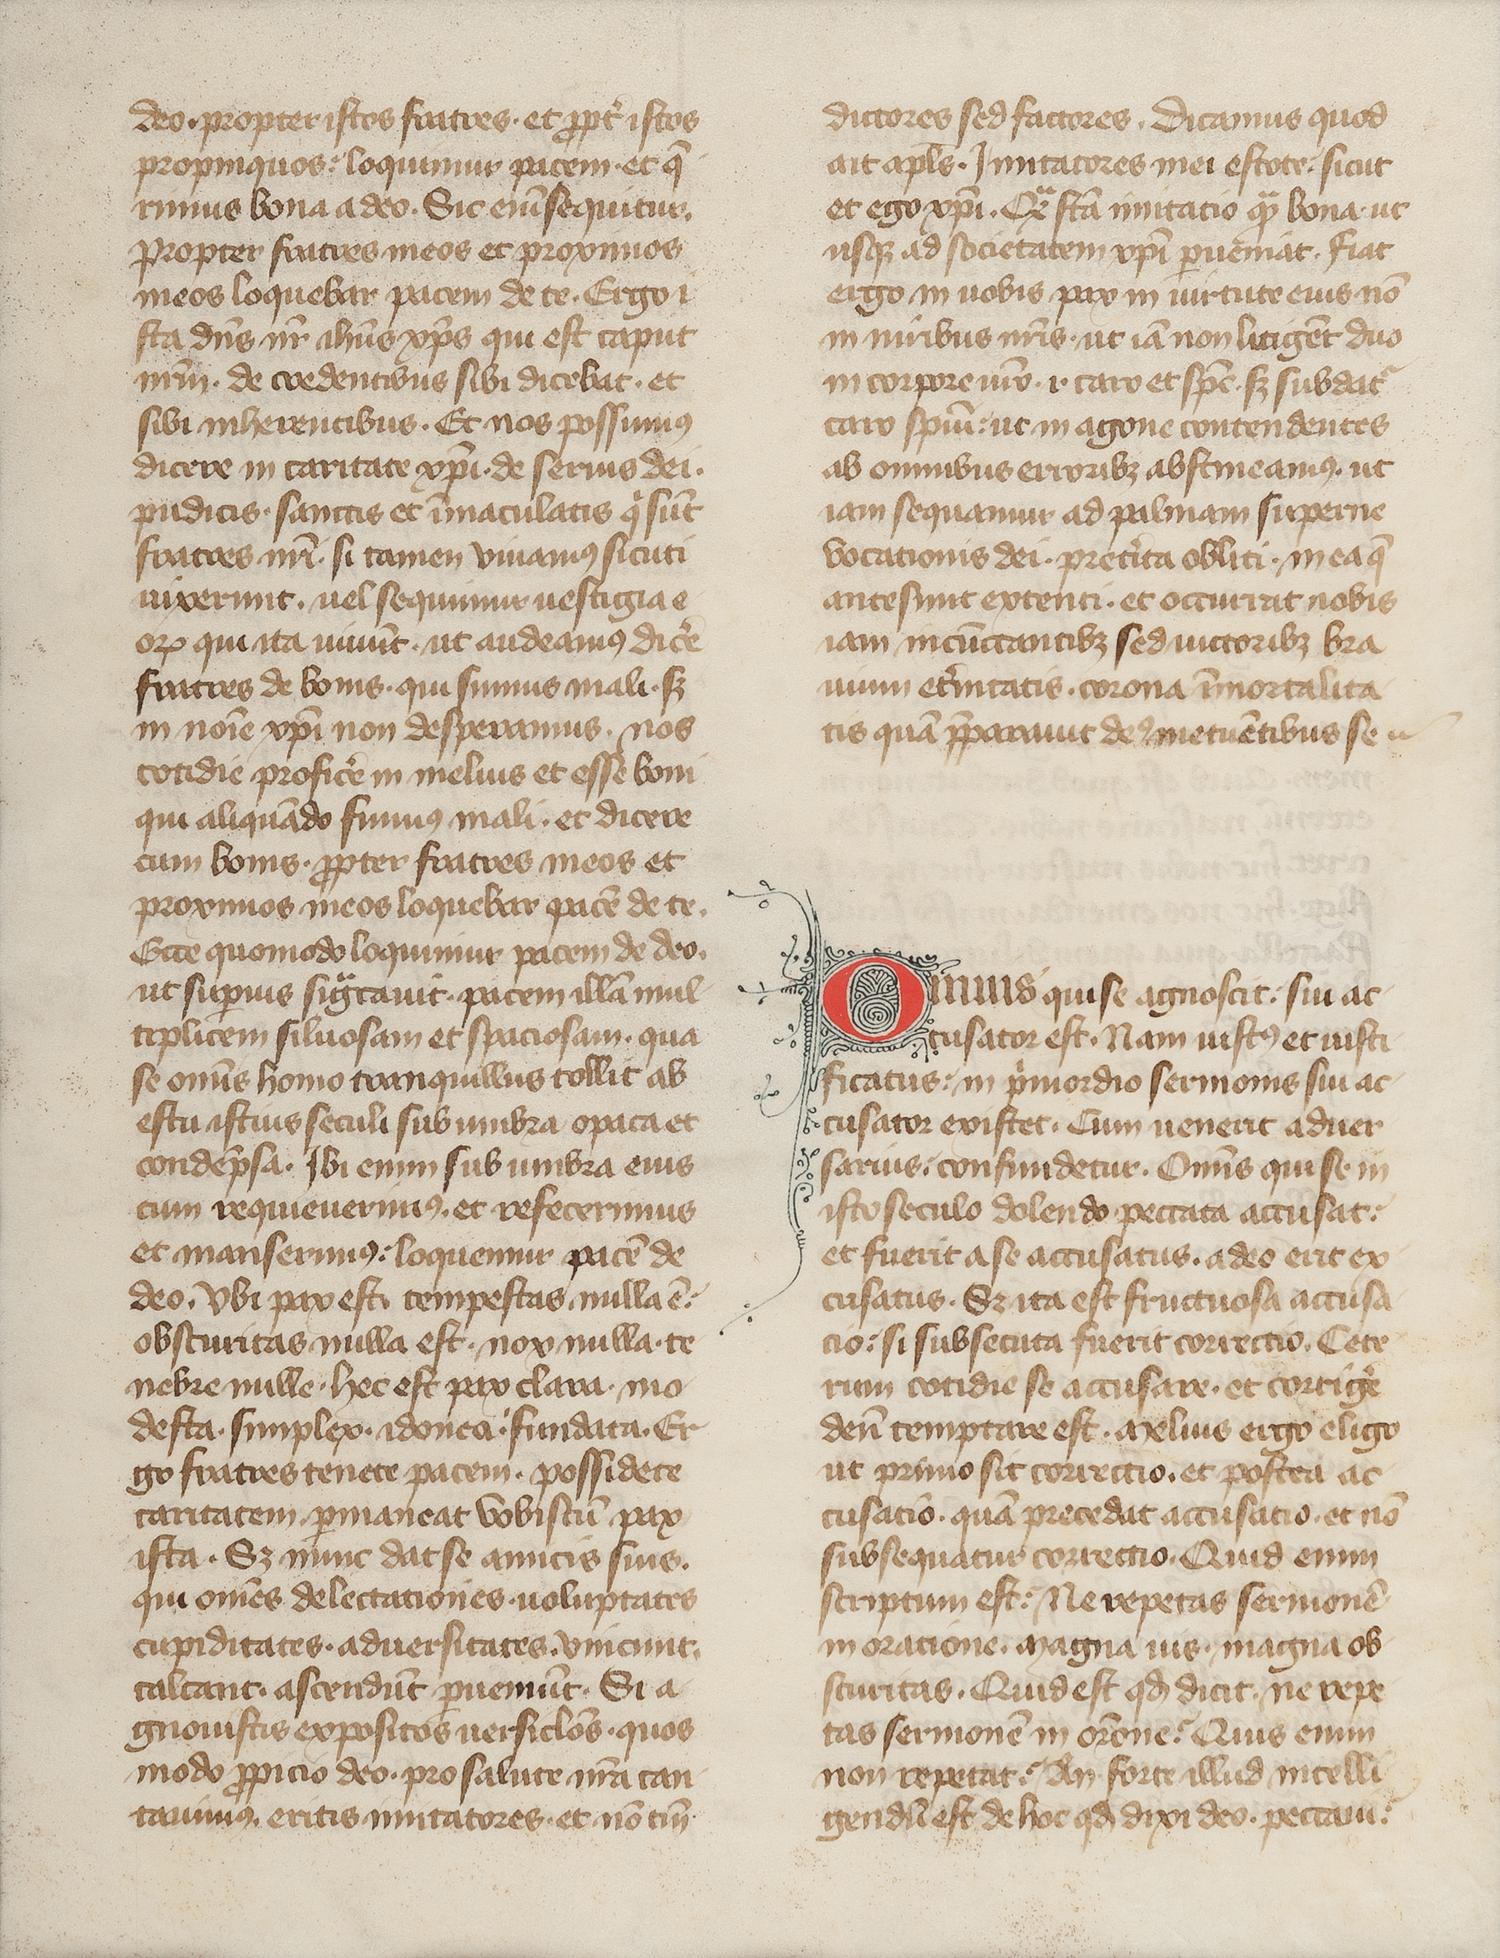 deo. propter istos fratres. et ꝓpt̉ istos
propinquos: loquimur pacem. et q̄
rimus bona a deo. Sic em̄ sequitur.
Propter fratres meos et proximos
meos loquebar pacem de te. Ergo i
sta dn̄s nr̄ ihūs xp̄s qui est caput
nr̄m. de credentibus sibi dicebat. et
sibi inherentibus. Et nos possumꝰ
dicere in caritate xp̄i. de seruis dei.
pudicis. sanctis et īmaculatis qͥ sūt
fratres nr̄i. si tamen viuamꝰ sicuti
uixerunt. uel sequimur uestigia e
oꝝ qui ita uiuūt. ut audeamꝰ dicē
fratres de bonis. qui sumus mali. sꝫ
in noīe xp̄i non desperamus. nos
cotidie proficē in melius et esse boni
qui aliquādo fuimꝰ mali. et dicere
cum bonis. ꝓpter fratres meos et
proximos meos loquebar pacē de te.
Ecce quomodo loquimur pacem de deo.
ut suꝑius sigͣtauit. pacem illā mul
teplicem siluosam et spaciosam. qua
se om̄s homo tranquillus tollit ab
estu istius seculi sub umbra opaca et
condēpsa. Ibi enim sub umbra eius
cum requieuerimꝰ. et refecerimus
et manserimꝰ: loquemur pacē de
deo. Vbi pax est. tempestas nulla ē:
obscuritas nulla est. nox nulla. te
nebre nulle. hec est pax clara. mo
desta. simplex. idonea. fundata. Er
go fratres tenete pacem. possidete
caritatem. ꝑmaneat vobiscū pax
ista. Sꝫ nunc dat se amicis suis.
qui om̄es delectationes. uoluptates
cupiditates. aduersitates. vincunt.
calcant. ascendūt ꝑueniūt. Si a
gnouistis expositos uersiclōs. quos
modo ꝓpicio deo. pro salute nr̄a can
tauimꝰ. eritis imitatores. et nō tm̄
dictores sed factores. Dicamus quod
ait apl̄s. Imitatores mei estote: sicut
et ego xp̄i. Qͣꝫ stā imitatio qͣꝫ bona. ut
usqꝫ ad societatem xp̄i ꝑueniāt. Fiat
ergo in uobis pax in uirtute eius nō
in uiribus nr̄is. ut iā non litigēt duo
in corpore uro. i. caro et sp̄c. sꝫ subdat᷑
caro spiui: ut in agone contendentes
ab omnibus erroribꝫ abstineamꝰ. ut
iam sequamur ad palmam superne
vocationis dei. pret̉ita obliti. in ea q̄
ante sunt extenti. et occurrat nobis
iam incūctantibꝫ sed uictoribꝫ bra
uium et̉nitatis. corona īmortalita
tis quā p̄paravit deꝰ metuētibus se
Omnis qui se agnoscit: sui ac
cusator est. Nam iustꝰ et iusti
ficatus: in pͥmordio sermonis sui ac
cusator existet. Cum uenerit aduer
sarius. confundetur. Om̄s qui se in
isto seculo dolendo peccata accusat:
et fuerit a se accusatus. a deo erit ex
cusatus. Sꝫ ita est fructuosa accusa
cio: si subsecuta fuerit correctio. Cete
rum cotidie se accusare. et corrigē
deū temptare est. Melius ergo eligo
ut primo sit correctio. et postea ac
cusatio. quā precedat accusatio. et nō
subsequatur correctio. Quid enim
scriptum est: Ne repetas sermonē
in oratione. Magna uis. magna ob
scuritas. Quid est qđ dicit. ne repe
tas sermonē in orōne: Quis enim
non repetat: An forte illud intelli
gendū est de hoc qđ dixi deo. peccaui: